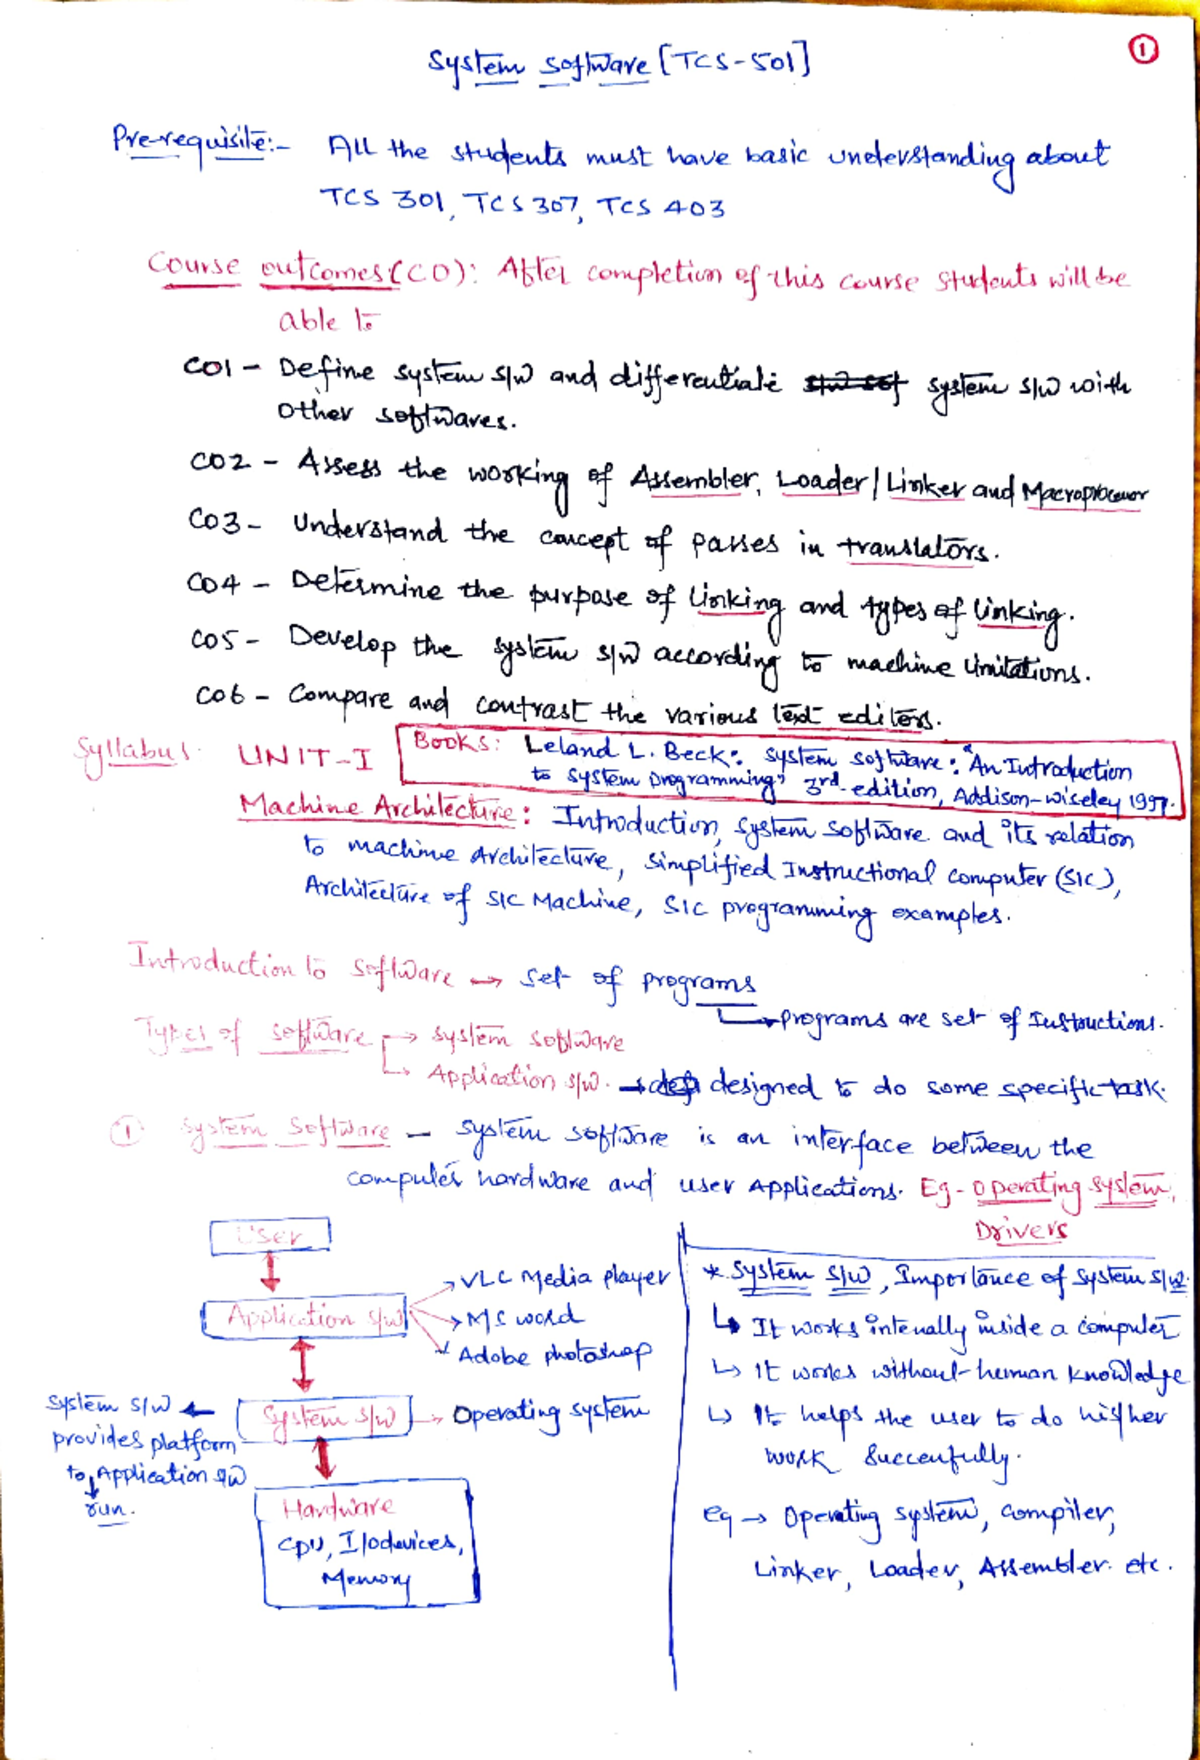 ①
System Software [TCS-501]
Pre-requisite:- All the students must have basic understanding about
TCS 301, TCS 307, TCS 403
Course outcomes (CO): After completion of this course students will be
able to
CO1 - Define system s/w and differentiate system s/w with
other softwares.
CO2 - Assess the working of Assembler, Loader/Linker and Macroprocessor
CO3 - Understand the concept of passes in translators.
CO4 - Determine the purpose of linking and types of linking.
CO5 - Develop the system s/w according to machine limitations.
CO6 - Compare and contrast the various text editors.
Syllabus UNIT-I
Books: Leland L. Beck: System software: "An Introduction
to system programming" 3rd edition, Addison-Wiseley 1997.
Machine Architecture: Introduction, System Software and its relation
to machine Architecture, Simplified Instructional computer (SIC),
Architecture of SIC Machine, SIC programming examples.
Introduction to software → Set of programs
→ programs are set of Instructions.
Types of software → System software
→ Application s/w. → designed to do some specific task.
① System Software - System software is an interface between the
computer hardware and user Applications. Eg- Operating system,
Drivers
User
Application s/w
→ VLC Media player
→ MS word
→ Adobe photoshop
System s/w → Operating system
System s/w ←
provides platform
to Application s/w
run.
Hardware
CPU, I/O devices,
Memory
* System s/w, Importance of System s/w.
↳ It works internally inside a computer
↳ It works without human knowledge
↳ It helps the user to do his/her
work Successfully.
eg → Operating system, compiler,
Linker, Loader, Assembler. etc.